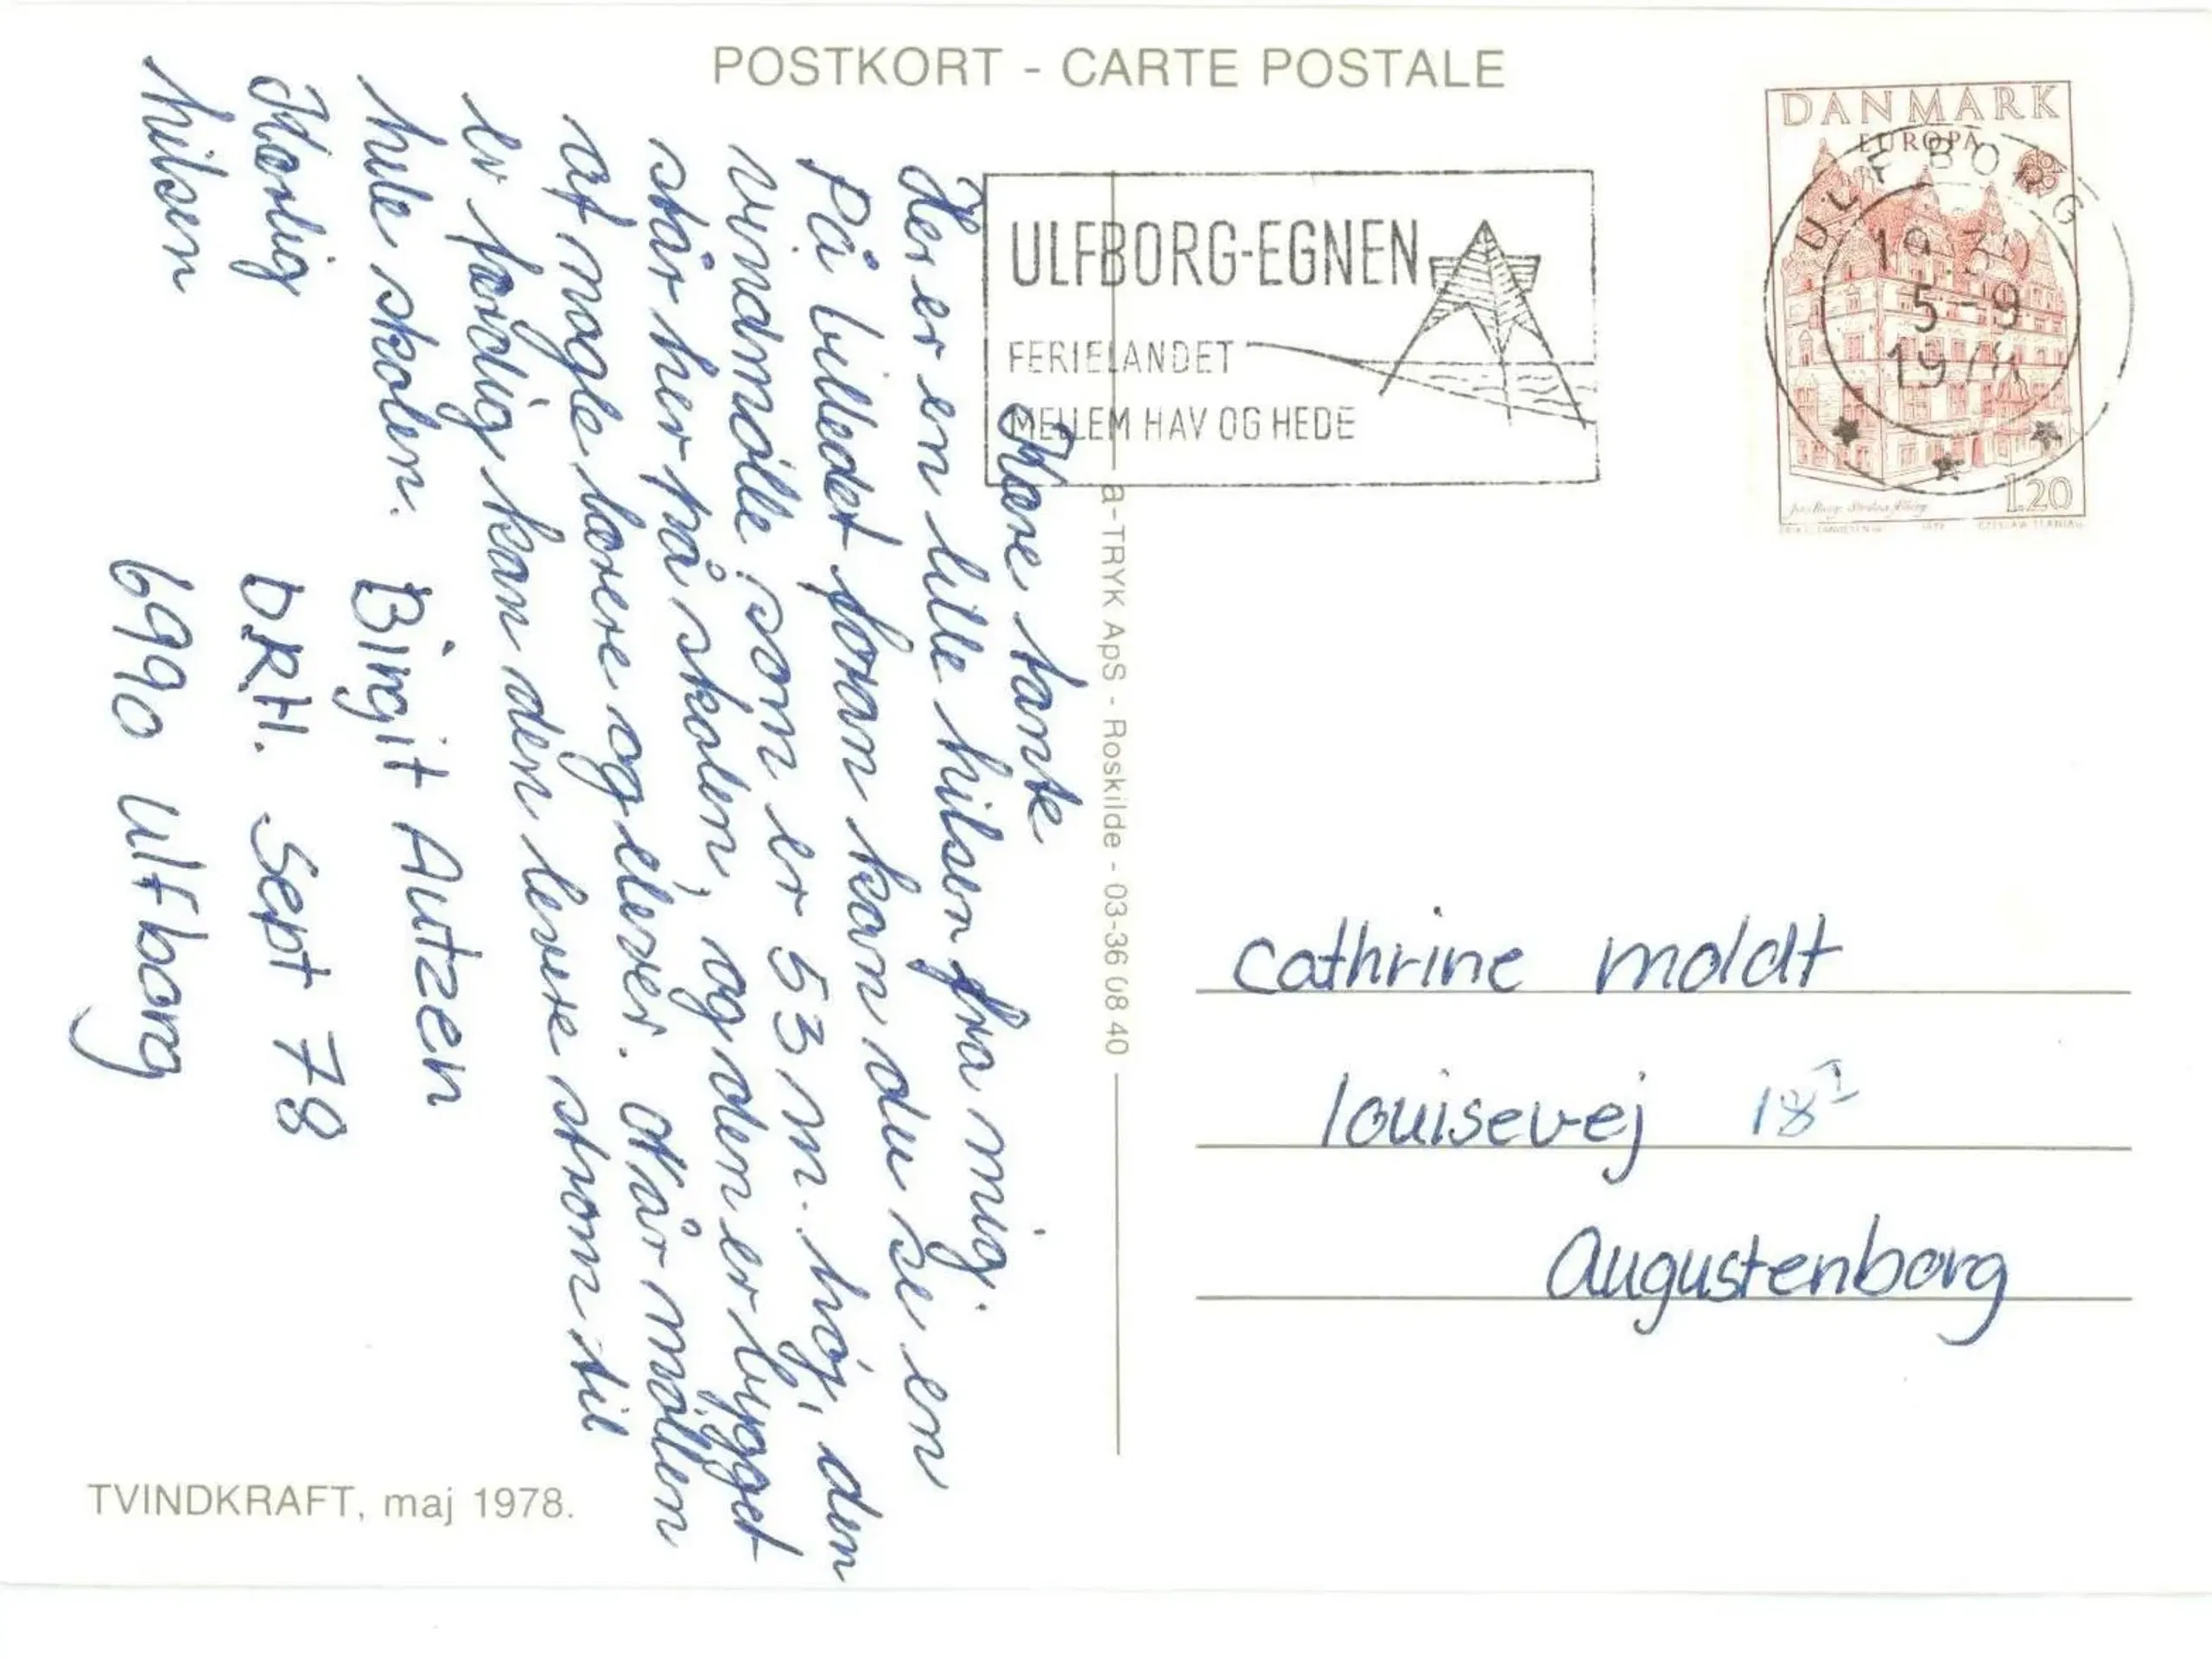 POSTKORT - CARTE POSTALE
DANMARK
EUROPA
ULFBORG
19.30
5-9
1978
1.20
ULFBORG-EGNEN
FERIELANDET
MELLEM HAV OG HEDE
Kære tante
Her er en lille hilsen fra mig.
På billedet foran kan du se en
vindmølle som er 53 m. høj, den
står her på skolen, og den er bygget
af nogle lærere og elever. Når møllen
er færdig kan den levere strøm til
hele skolen.
Kærlig
hilsen
Birgit Autzen
DRH. Sept 78
6990 Ulfborg
a-TRYK ApS - Roskilde - 03-36 08 40
Cathrine Moldt
Louisevej 18 I
Augustenborg
TVINDKRAFT, maj 1978.